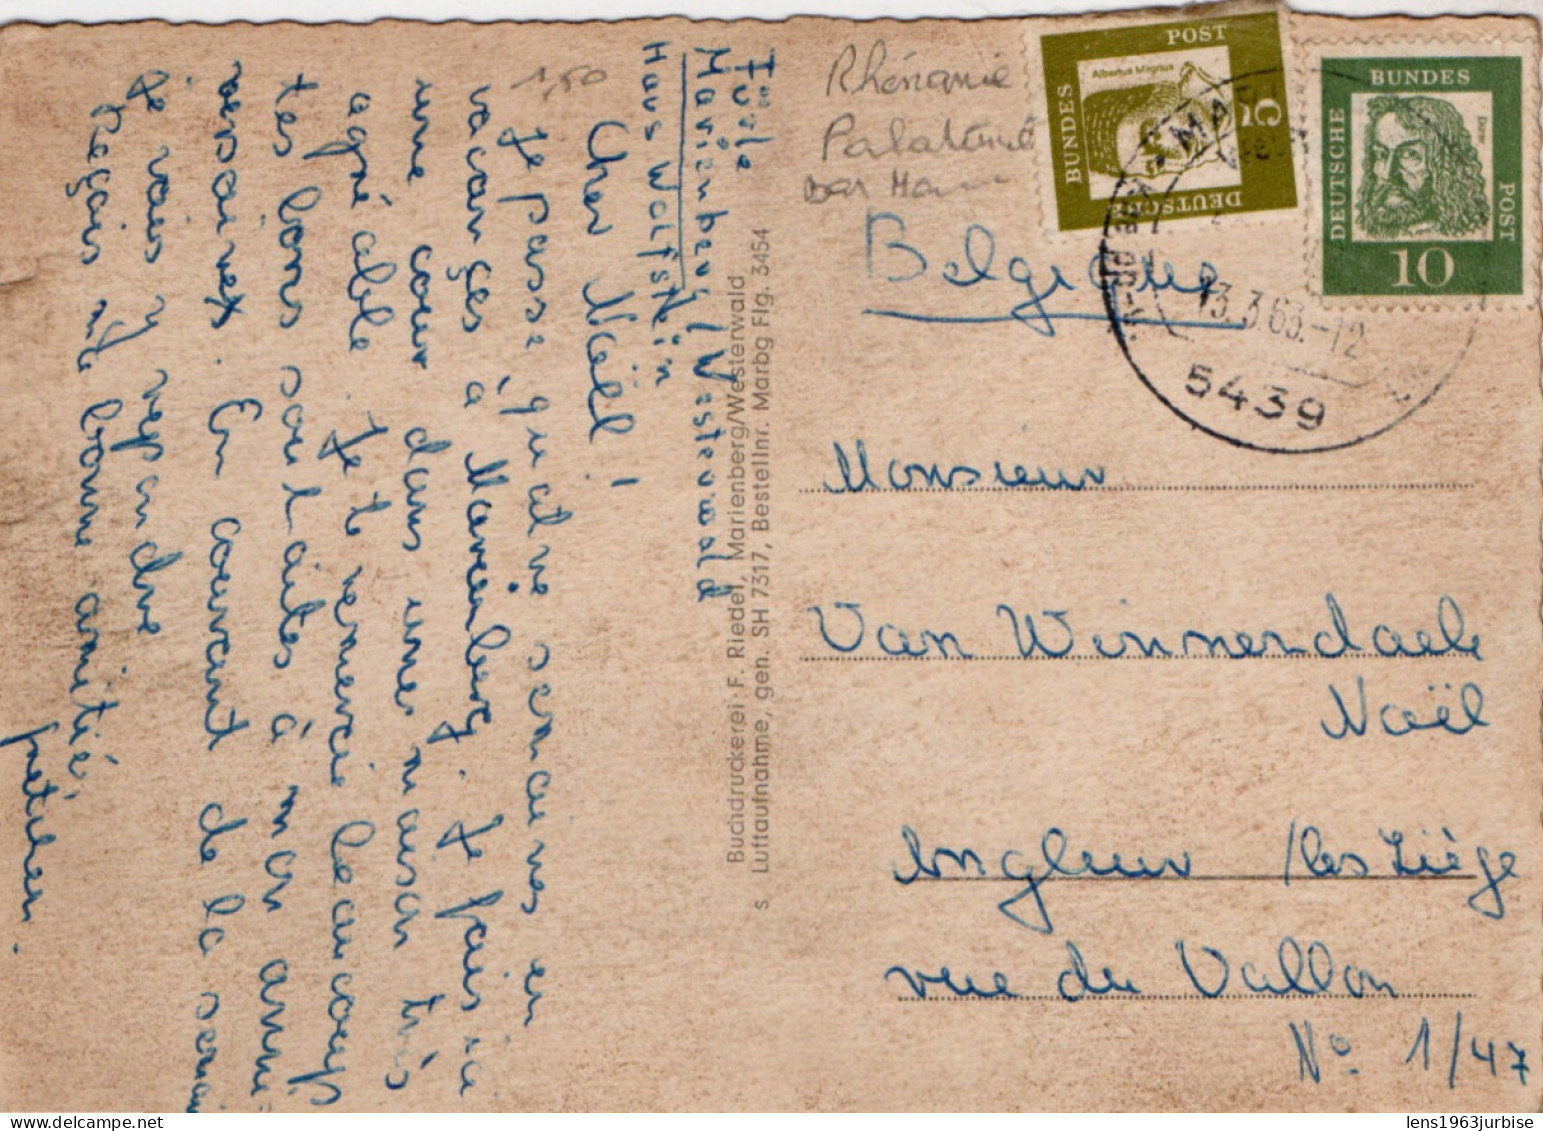 Türle
Marienberg / Westerwald
Haus Wolfstein
1,50
Cher Noël !
Je passe quatre semaines en
vacances à Marienberg. Je fais ici
une cour dans une maison très
agréable. Je te remercie beaucoup
tes bons souhaités à mon anni-
versaire. En courant de la semai
Je vais y repondre
Reçois ma bonne amitié,
Buchdruckerei F. Riedel, Marienberg/Westerwald
s Luftaufnahme, gen. SH 7317, Bestellnr. Marbg Flg. 3454
Rhénanie
Palatinat
Belgique
POST
Albertus Magnus
5
BUNDES
DEUTSCHE
BUNDES
DEUTSCHE
POST
Dürer
10
13.3.63.-12
5439
Monsieur
Van Winnendaele
Noël
Angleur /les Liège
rue du Vallon
N° 1/47
lens1963jurbise